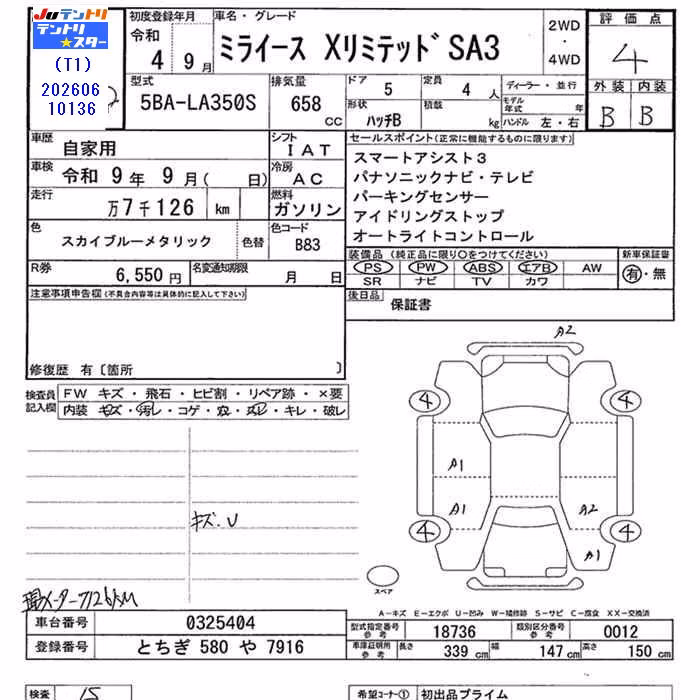 Juテントリ
テントリ
スター
(T1)
202606
10136
初度登録年月
令和
4 9月
車名・グレード
ミライース Xリミテッド SA3
2WD
・
4WD
評価点
4
外装 内装
B B
型式
5BA-LA350S
排気量
658
cc
ドア 5
形状 ハッチB
定員 4 人
積載 kg
ディーラー・並行
モデル年式 年
ハンドル 左・右
車歴 自家用
シフト IAT
車検 令和 9年 9月( 日)
冷房 AC
走行 万7千126 km
燃料 ガソリン
色 スカイブルーメタリック 色替
色コード B83
R券 6,550円
名変通知期限 月 日
セールスポイント(正常に機能するものに限ります)
スマートアシスト3
パナソニックナビ・テレビ
パーキングセンサー
アイドリングストップ
オートライトコントロール
装備品 (純正品に限り○をつけてください) 新車保証書
PS PW ABS エアB AW
SR ナビ TV カワ
有・無
後日品 保証書
注意事項申告欄(不具合内容等は具体的に記入して下さい)
修復歴 有〔箇所 〕
検査員
記入欄
FW キズ・飛石・ヒビ割・リペア跡・×要
内装・キズ・汚レ・コゲ・穴・スレ・キレ・破レ
キズ.U
メーター7126KM
A2
4 4
A1
A1 A2
4 4
A1
スペア
A-キズ E-エクボ U-凹み W-補修跡 S-サビ C-腐食 XX-交換済
車台番号 0325404
登録番号 とちぎ 580 や 7916
型式指定番号
参考
18736
類別区分番号
参考
0012
車庫証明用
参考
長さ 339 cm 幅 147 cm 高さ 150 cm
検査 15
希望コーナー① 初出品プライム